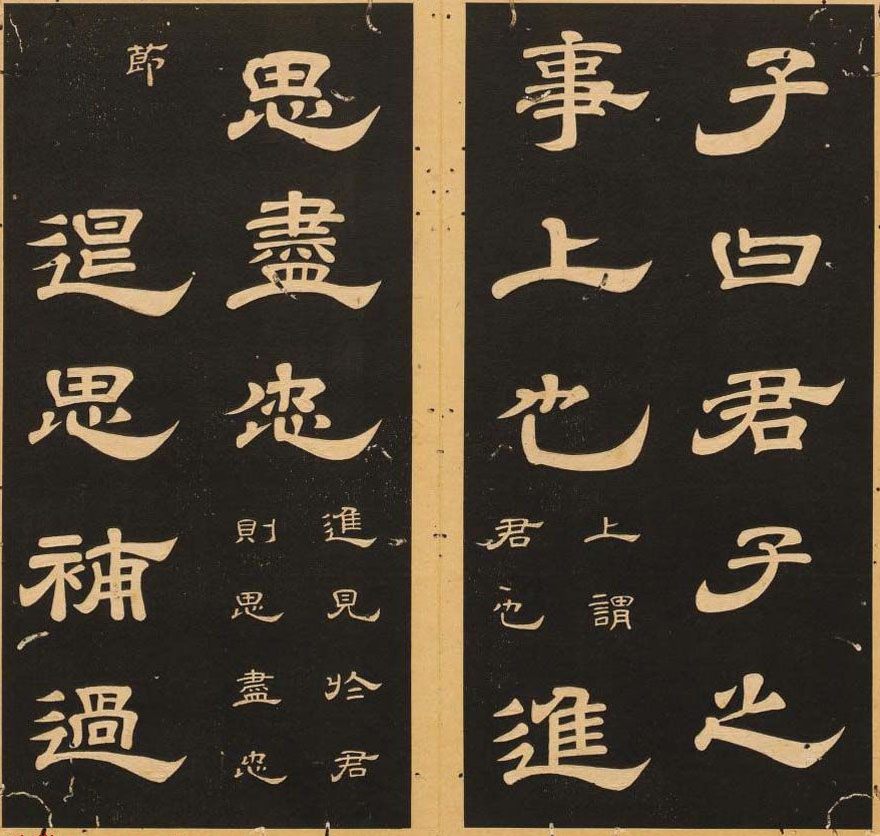 子曰君子之
事上也上謂君也進
思盡忠進見於君則思盡忠
節退思補過